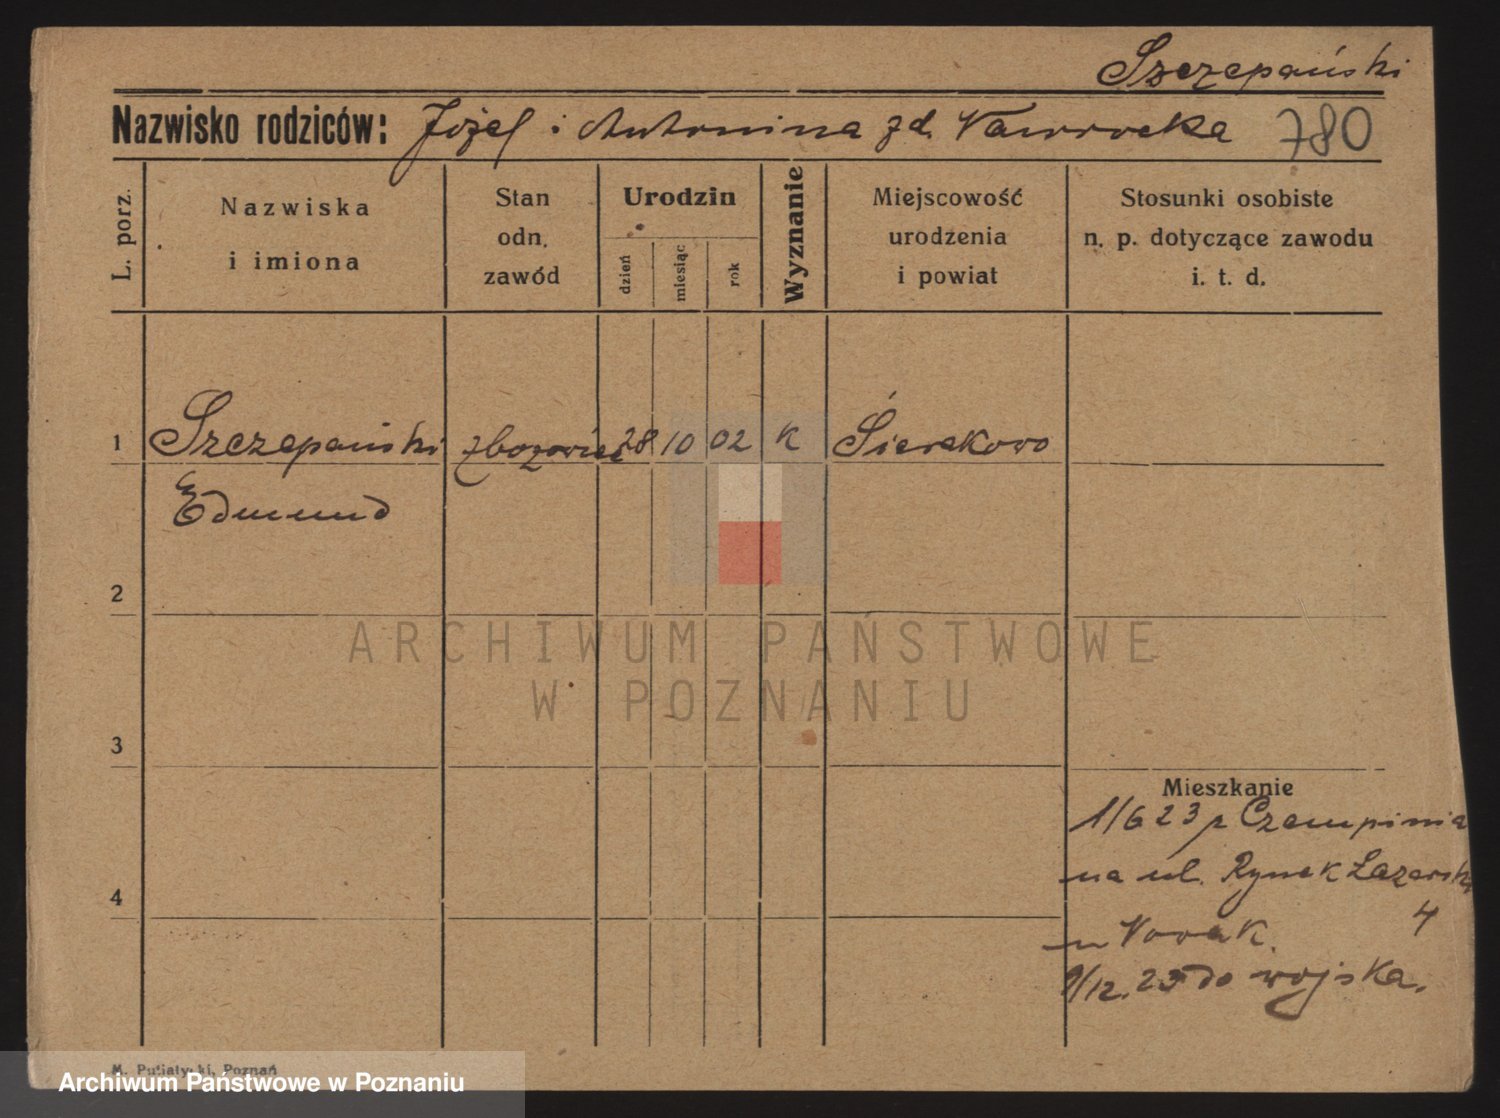 Szczepański
Nazwisko rodziców: Józef i Antonina zd. Nawrocka 780
L. porz.
Nazwiska
i imiona
Stan
odn.
zawód
Urodzin
dzień
miesiąc
rok
Wyznanie
Miejscowość
urodzenia
i powiat
Stosunki osobiste
n. p. dotyczące zawodu
i. t. d.
1 Szczepański zbozowiec 28 10 02 K Sierakowo
Edmund
2
3
4
Mieszkanie
1/6 23 z Czempinia
na ul. Rynek Łazarski
4
u Nowak.
9/12. 23 do wojska.
ARCHIWUM PAŃSTWOWE
W POZNANIU
M. Putiatycki, Poznań
Archiwum Państwowe w Poznaniu